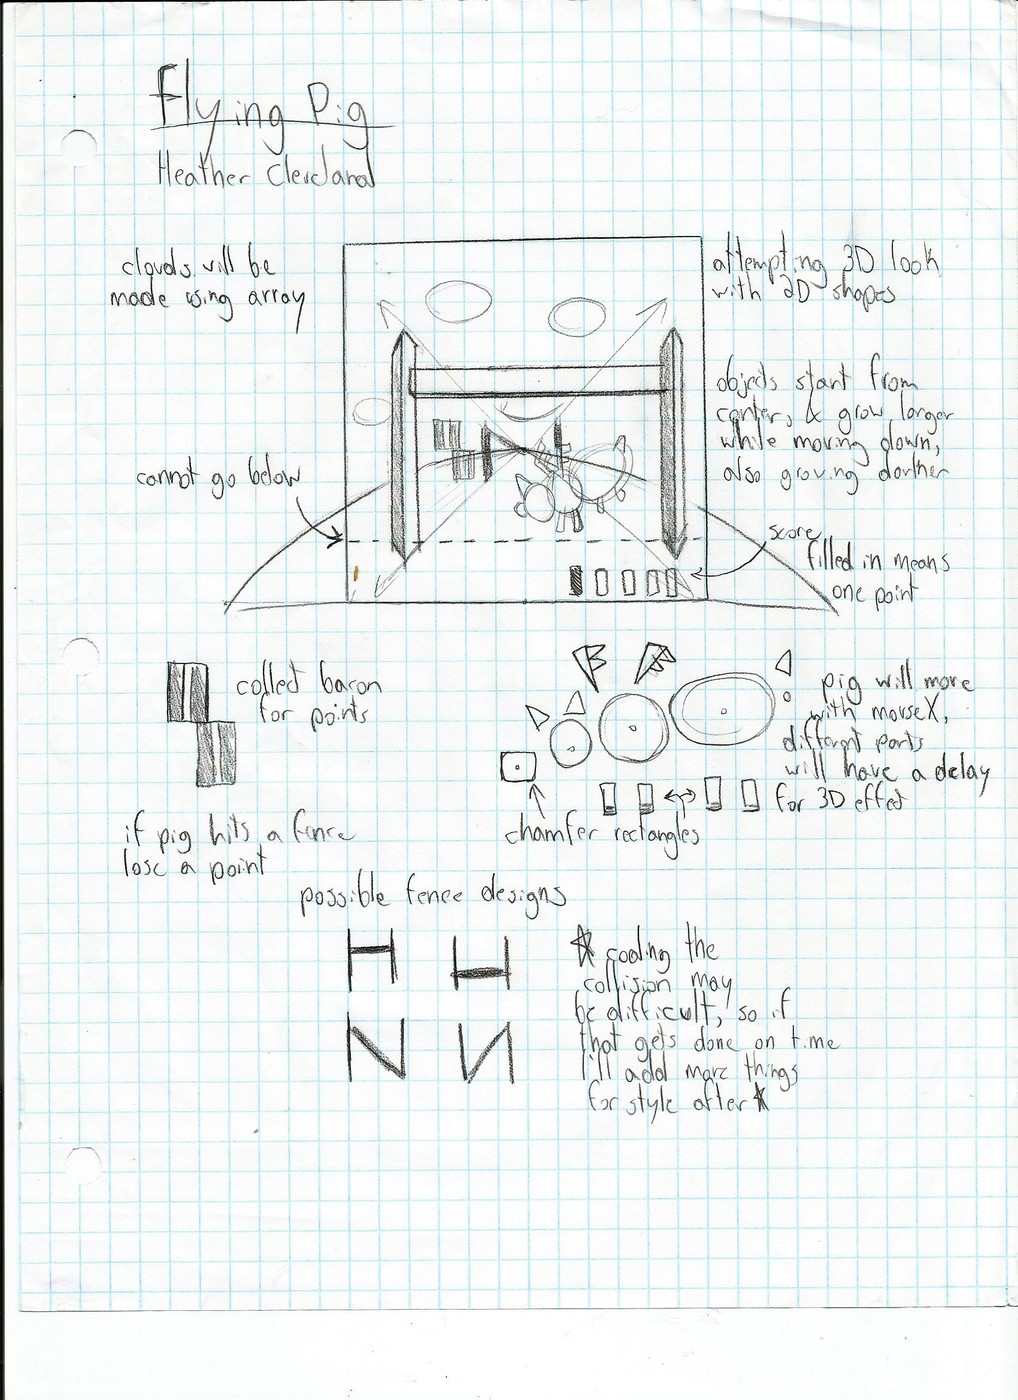 Flying Pig
Heather Cleveland
clouds will be
made using array
attempting 3D look
with 2D shapes
objects start from
center, & grow larger
while moving down,
also growing darker
cannot go below
score,
filled in means
one point
collect bacon
for points
pig will move
with mouseX,
different parts
will have a delay
for 3D effect
chamfer rectangles
if pig hits a fence
lose a point
possible fence designs
coding the
collision may
be difficult, so if
that gets done on time
I'll add more things
for style after